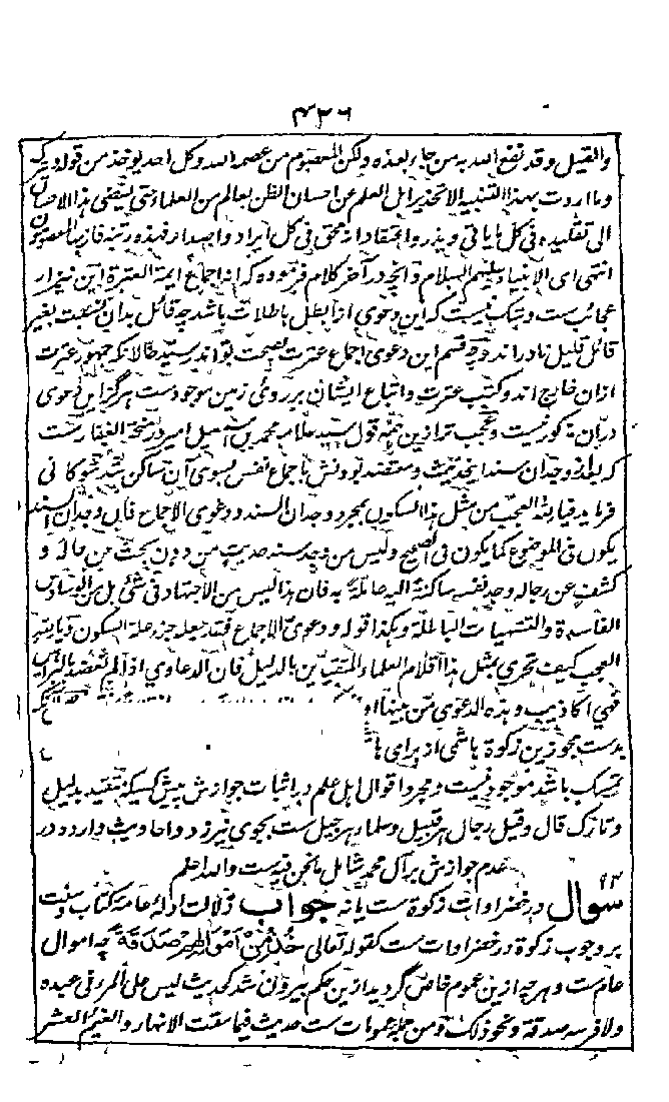 ۴۲۶
والقیل وقد نفع الله به من جاء بعده ولکن المعصوم من عصمه الله وکل احد یوخذ من قوله ویترک
وما اردت بهذا التنبیه الا تحذیر اهل العلم عن احسان الظن بعالم من العلماء حتی یفضی هذا الاحسان
الی تقلیده فی کل ما یاتی ویذر واعتقاد انه محق فی کل ایراد واصدار فهذه رتبة فاز بها المعصومون
انتهی ای الانبیاء علیهم السلام وآنچه در آخر کلام فرموده که انه اجماع ایمة العترة این نیز از
عجائب ست وشک نیست که این دعوی از ابطل باطلات باشد چه قائل بدان نسبت بغیر
قائل قلیل نادر اند وچه قسم این دعوی اجماع عترت بصحت تواند رسید حالانکه جمهور عترت
ازان خارج اند وکتب عترت واتباع ایشان بر روی زمین موجودست هرگز این دعوی
دران مذکور نیست وعجب تر ازین همه قول سید علامه محمد بن اسمعیل امیر در منحة الغفار ست
که بعد وجدان سند این حدیث ومعتضد بودنش باجماع نفس بسوی آن ساکن شد شوکانی
فرماید فیا لله العجب من مثل هذا السکون بمجرد وجدان السند ودعوی الاجماع فان وجدان السند
یکون فی الموضوع کما یکون فی الصحیح ولیس من وجد سند حدیث من دون بحث عن حاله و
کشف عن رجاله وجد نفسه ساکنة الیه عاملة به فان هذا لیس من الاجتهاد فی شئ بل من الوساوس
الفاسدة والتشهیات الباطلة وهکذا قوله ودعوی الاجماع فقد جعله جزء علة السکون فیا لله
العجب کیف تجری بمثل هذا اقلام العلماء المتقیدین بالدلیل فان الدعاوی اذا لم تعضد بالبراهین
فهی اکاذیب وهذه الدعوی من بینها
بدست مجوزین زکوة هاشمی از برای
تمسک باشد موجود نیست ومجرد اقوال اهل علم در اثبات جوازش پیش کسیکه متقید بدلیل
وتارک قال وقیل رجال هر قبیل وسلماء هر جیل ست بجوی نیرزد واحادیث وارده در
عدم جوازش بر آل محمد شامل مانحن فیه ست والله اعلم
۹۳
سوال در خضراوات زکوة ست یا نه جواب دلالت ادلهٔ عامهٔ کتاب وسنت
بر وجوب زکوة در خضراوات ست کقوله تعالی خُذْ مِنْ اَمْوَالِهِمْ صَدَقَةً چه اموال
عام ست و هر چه ازین عموم خاص گردید ازین حکم بیرون شد کحدیث لیس علی المرء فی عبده
ولا فرسه صدقة ونحو ذلک ومن جمله عمومات ست حدیث فیما سقت الانهار والغیم العشر